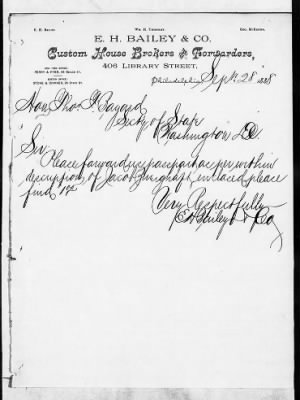 E. H. BAILEY
WM. H.
GEO. MCKEOWN
E. H. BAILEY & CO.
Custom House Brokers & Forwarders,
406 LIBRARY STREET,
Philadelphia, Sept. 28 1888
Hon Thos F Bayard
Secty of State
Washington DC
Sir
Please forward us passport as per within
description of Jacob enclosed please
find 1 00
Very Respectfully
E H Bailey & Co